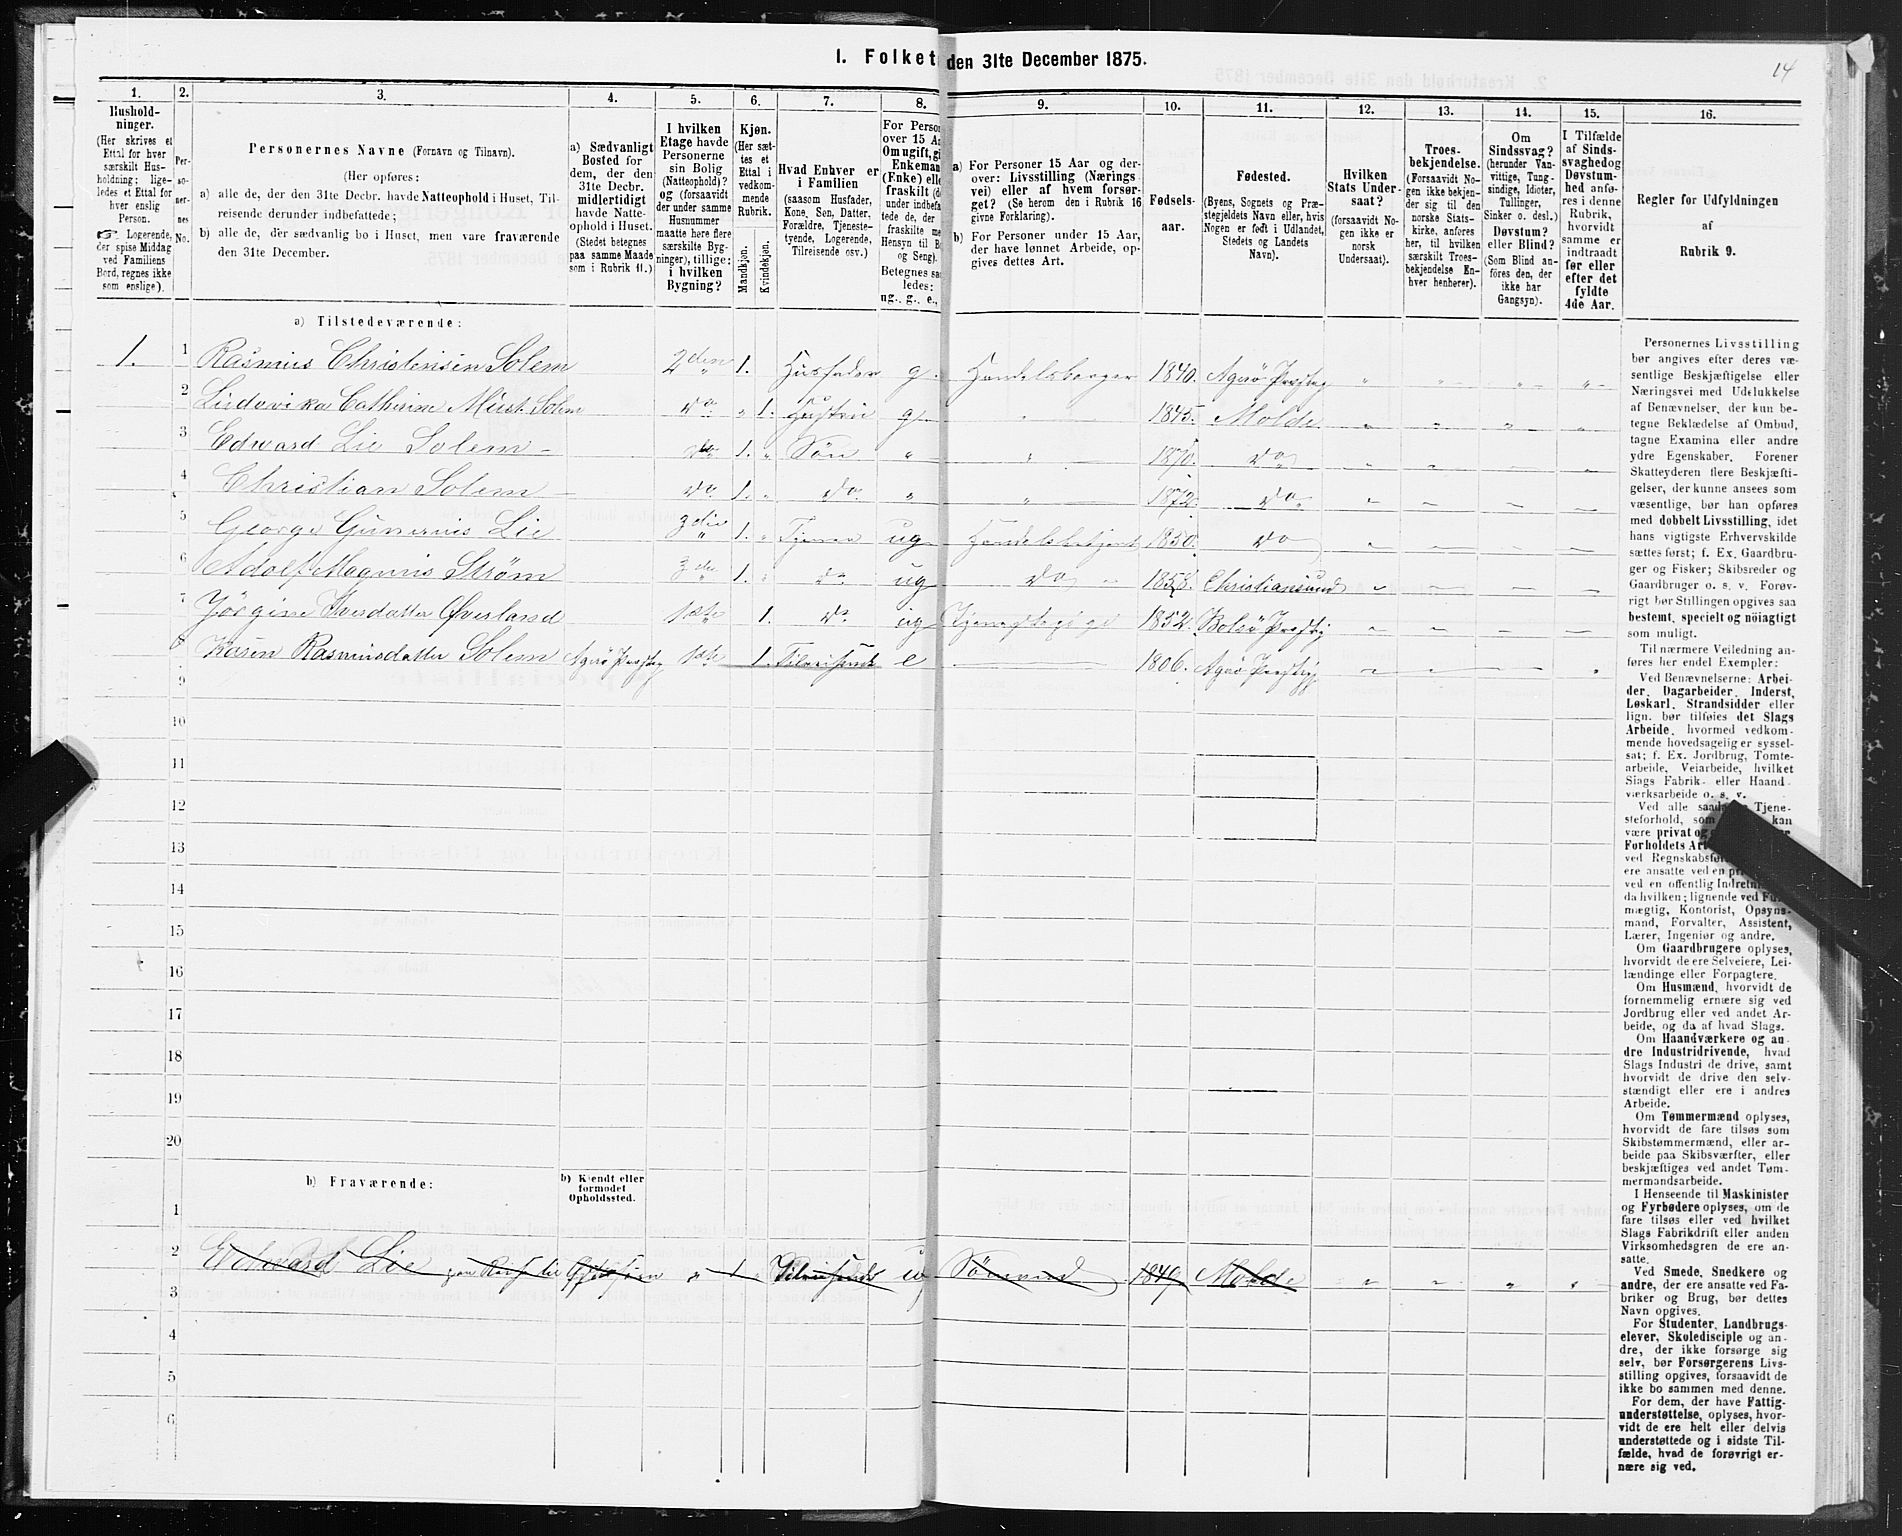 1. Folket den 31te December 1875.
14
1. 2. 3. 4. 5. 6. 7. 8. 9. 10. 11. 12. 13. 14. 15. 16.
Hushold-
ninger.
(Her skrives et
Ettal for hver
særskilt Hus-
holdning; lige-
ledes et Ettal for
hver enslig
Person.
☞ Logerende,
der spise Middag
ved Familiens
Bord, regnes ikke
som enslige).
Per-
so-
ner-
nes
No.
Personernes Navne (Fornavn og Tilnavn).
(Her opføres:
a) alle de, der den 31te Decbr. havde Natteophold i Huset, Til-
reisende derunder indbefattede;
b) alle de, der sædvanlig bo i Huset, men vare fraværende
den 31te December.
a) Sædvanligt
Bosted for
dem, der den
31te Decbr.
midlertidigt
havde Natte-
ophold i Huset.
(Stedet betegnes
paa samme Maade
som i Rubrik 11.)
I hvilken
Etage havde
Personerne
sin Bolig
(Natteophold)?
og (forsaavidt
der under samme
Husnummer
maatte here flere
særskilte Byg-
ninger), tillige:
i hvilken
Bygning?
Kjøn.
(Her sæt-
tes et
Ettal i
vedkom-
mende
Rubrik.
Mandkjøn.
Kvindekjøn.
Hvad Enhver er
i Familien
(saasom Husfader,
Kone, Søn, Datter,
Forældre, Tjeneste-
tyende, Logerende,
Tilreisende osv.)
For Person
over 15 Aa
Om ugift, gi
Enkeman
(Enke) elle
fraskilt (d
under indbefa
tede de, der
fraskilte me
Hensyn til B
og Seng).
Betegnes saa
ledes:
ug., g., e.,
a) For Personer 15 Aar og der-
over: Livsstilling (Nærings
vei) eller af hvem forsør-
get? (Se herom den i Rubrik 16
givne Forklaring).
b) For Personer under 15 Aar,
der have lønnet Arbeide, op-
gives dettes Art.
Fødsels-
aar.
Fødested.
(Byens, Sognets og Præ-
stegjeldets Navn eller, hvis
Nogen er født i Udlandet,
Stedets og Landets
Navn).
Hvilken
Stats Under-
saat?
(forsaavidt No-
gen ikke er
norsk
Undersaat).
Troes-
bekjendelse.
(Forsaavidt No-
gen ikke bekjen-
der sig til den
norske Stats-
kirke, anføres
her, til hvilken
særskilt Troes-
bekjendelse En-
hver henhører).
Om
Sindssvag?
(herunder Van-
vittige, Tung-
sindige, Idioter,
Tullinger,
Sinker o. desl.)
Døvstum?
eller Blind?
(Som Blind an-
føres den, der
ikke har
Gangsyn).
I Tilfælde
af Sinds-
svaghed og
Døvstum-
hed anfø-
res i denne
Rubrik,
hvorvidt
samme er
indtraadt
før eller
efter det
fyldte
4de Aar.
Regler for Udfyldningen
af
Rubrik 9.
a) Tilstedeværende:
1. 1 Rasmus Christensen Solem 2den 1. Husfader g. Handelsborger 1840. Agerø Præsteg " " " "
2 Ludovika Catherine Müst Solem do " 1. Hustru g " 1845. Molde " " " "
3 Edward Lie Solem do 1. " Søn " " 1870. do " " " "
4 Christian Solem do 1. " do " " 1872. do " " " "
5 George Gunerius Lie 3die 1. " Tjener ug Handelsbetjent 1850. do " " " "
6 Adolf Magnus Strøm 3die 1. " do ug do 1858. Christiansund " " " "
7 Jørgine Iversdatter Øverland 1ste 1. do ug Tjenestepige 1852. Bolsø Præstg " " " "
8 Karen Rasmusdatter Solem Agerø Præsteg 1ste 1. Tilreisende e 1806. Agerø Præstg " " "
9
10
11
12
13
14
15
16
17
18
19
20
b) Fraværende:
b) Kjendt eller
formodet
Opholdssted.
1
2 Edward Lie " 1 " Tilreisende ug Sømand 1849 Molde " " " "
3
4
5
6
Personernes Livsstilling
bør angives efter deres væ-
sentlige Beskjæftigelse eller
Næringsvei med Udelukkelse
af Benævnelser, der kun be-
tegne Beklædelse af Ombud,
tagne Examina eller andre
ydre Egenskaber. Forener
Skatteyderen flere Beskjæfti-
gelser, der kunne ansees som
væsentlige, bør han opføres
med dobbelt Livsstilling, idet
hans vigtigste Erhvervskilde
sættes først; f. Ex. Gaardbru-
ger og Fisker; Skibsreder og
Gaardbruger o. s. v. Forøv-
rigt bør Stillingen opgives saa
bestemt, specielt og nöiagtigt
som muligt.
Til nærmere Veiledning an-
føres her endel Exempler:
Ved Benævnelserne: Arbei-
der, Dagarbeider, Inderst,
Løskarl, Strandsidder eller
lign. bør tilføies det Slags
Arbeide, hvormed vedkom-
mende hovedsagelig er syssel-
sat; f. Ex. Jordbrug, Tomte-
arbeide, Veiarbeide, hvilket
Slags Fabrik- eller Haand-
værksarbeide o. s. v.
Ved alle saadanne Tjene-
steforhold, som kan
være privat og
Forholdets Art
ved Regnskabsfø
ere ansatte ved en pri
ved en offentlig Indretni
da hvilken; lignende ved Fuld-
mægtig, Kontorist, Opsyns-
mand, Forvalter, Assistent,
Lærer, Ingeniør og andre.
Om Gaardbrugere oplyses,
hvorvidt de ere Selveiere, Lei-
lændinge eller Forpagtere.
Om Husmænd, hvorvidt de
fornemmelig ernære sig ved
Jordbrug eller ved andet Ar-
beide, og da af hvad Slags.
Om Haandværkere og an-
dre Industridrivende, hvad
Slags Industri de drive, samt
hvorvidt de drive den selv-
stændigt eller ere i andres
Arbeide.
Om Tømmermænd oplyses,
hvorvidt de fare tilsøs som
Skibstømmermænd, eller ar-
beide paa Skibsværfter, eller
beskjæftiges ved andet Tøm-
mermandsarbeide.
I Henseende til Maskinister
og Fyrbødere oplyses, om de
fare tilsøs eller ved hvilket
Slags Fabrikdrift eller anden
Virksomhedsgren de ere an-
satte.
Ved Smede, Snedkere og
andre, der ere ansatte ved Fa-
briker og Brug, bør dettes
Navn opgives.
For Studenter, Landbrugs-
elever, Skoledisciple og an-
dre, der ikke forsørge sig
selv, bør Forsørgerens Livs-
stilling opgives, forsaavidt de
ikke bo sammen med denne.
For dem, der have Fattig-
understøttelse, oplyses, hvor-
vidt de ere helt eller delvis
understøttede og i sidste Til-
fælde, hvad de forøvrigt er-
nære sig ved.